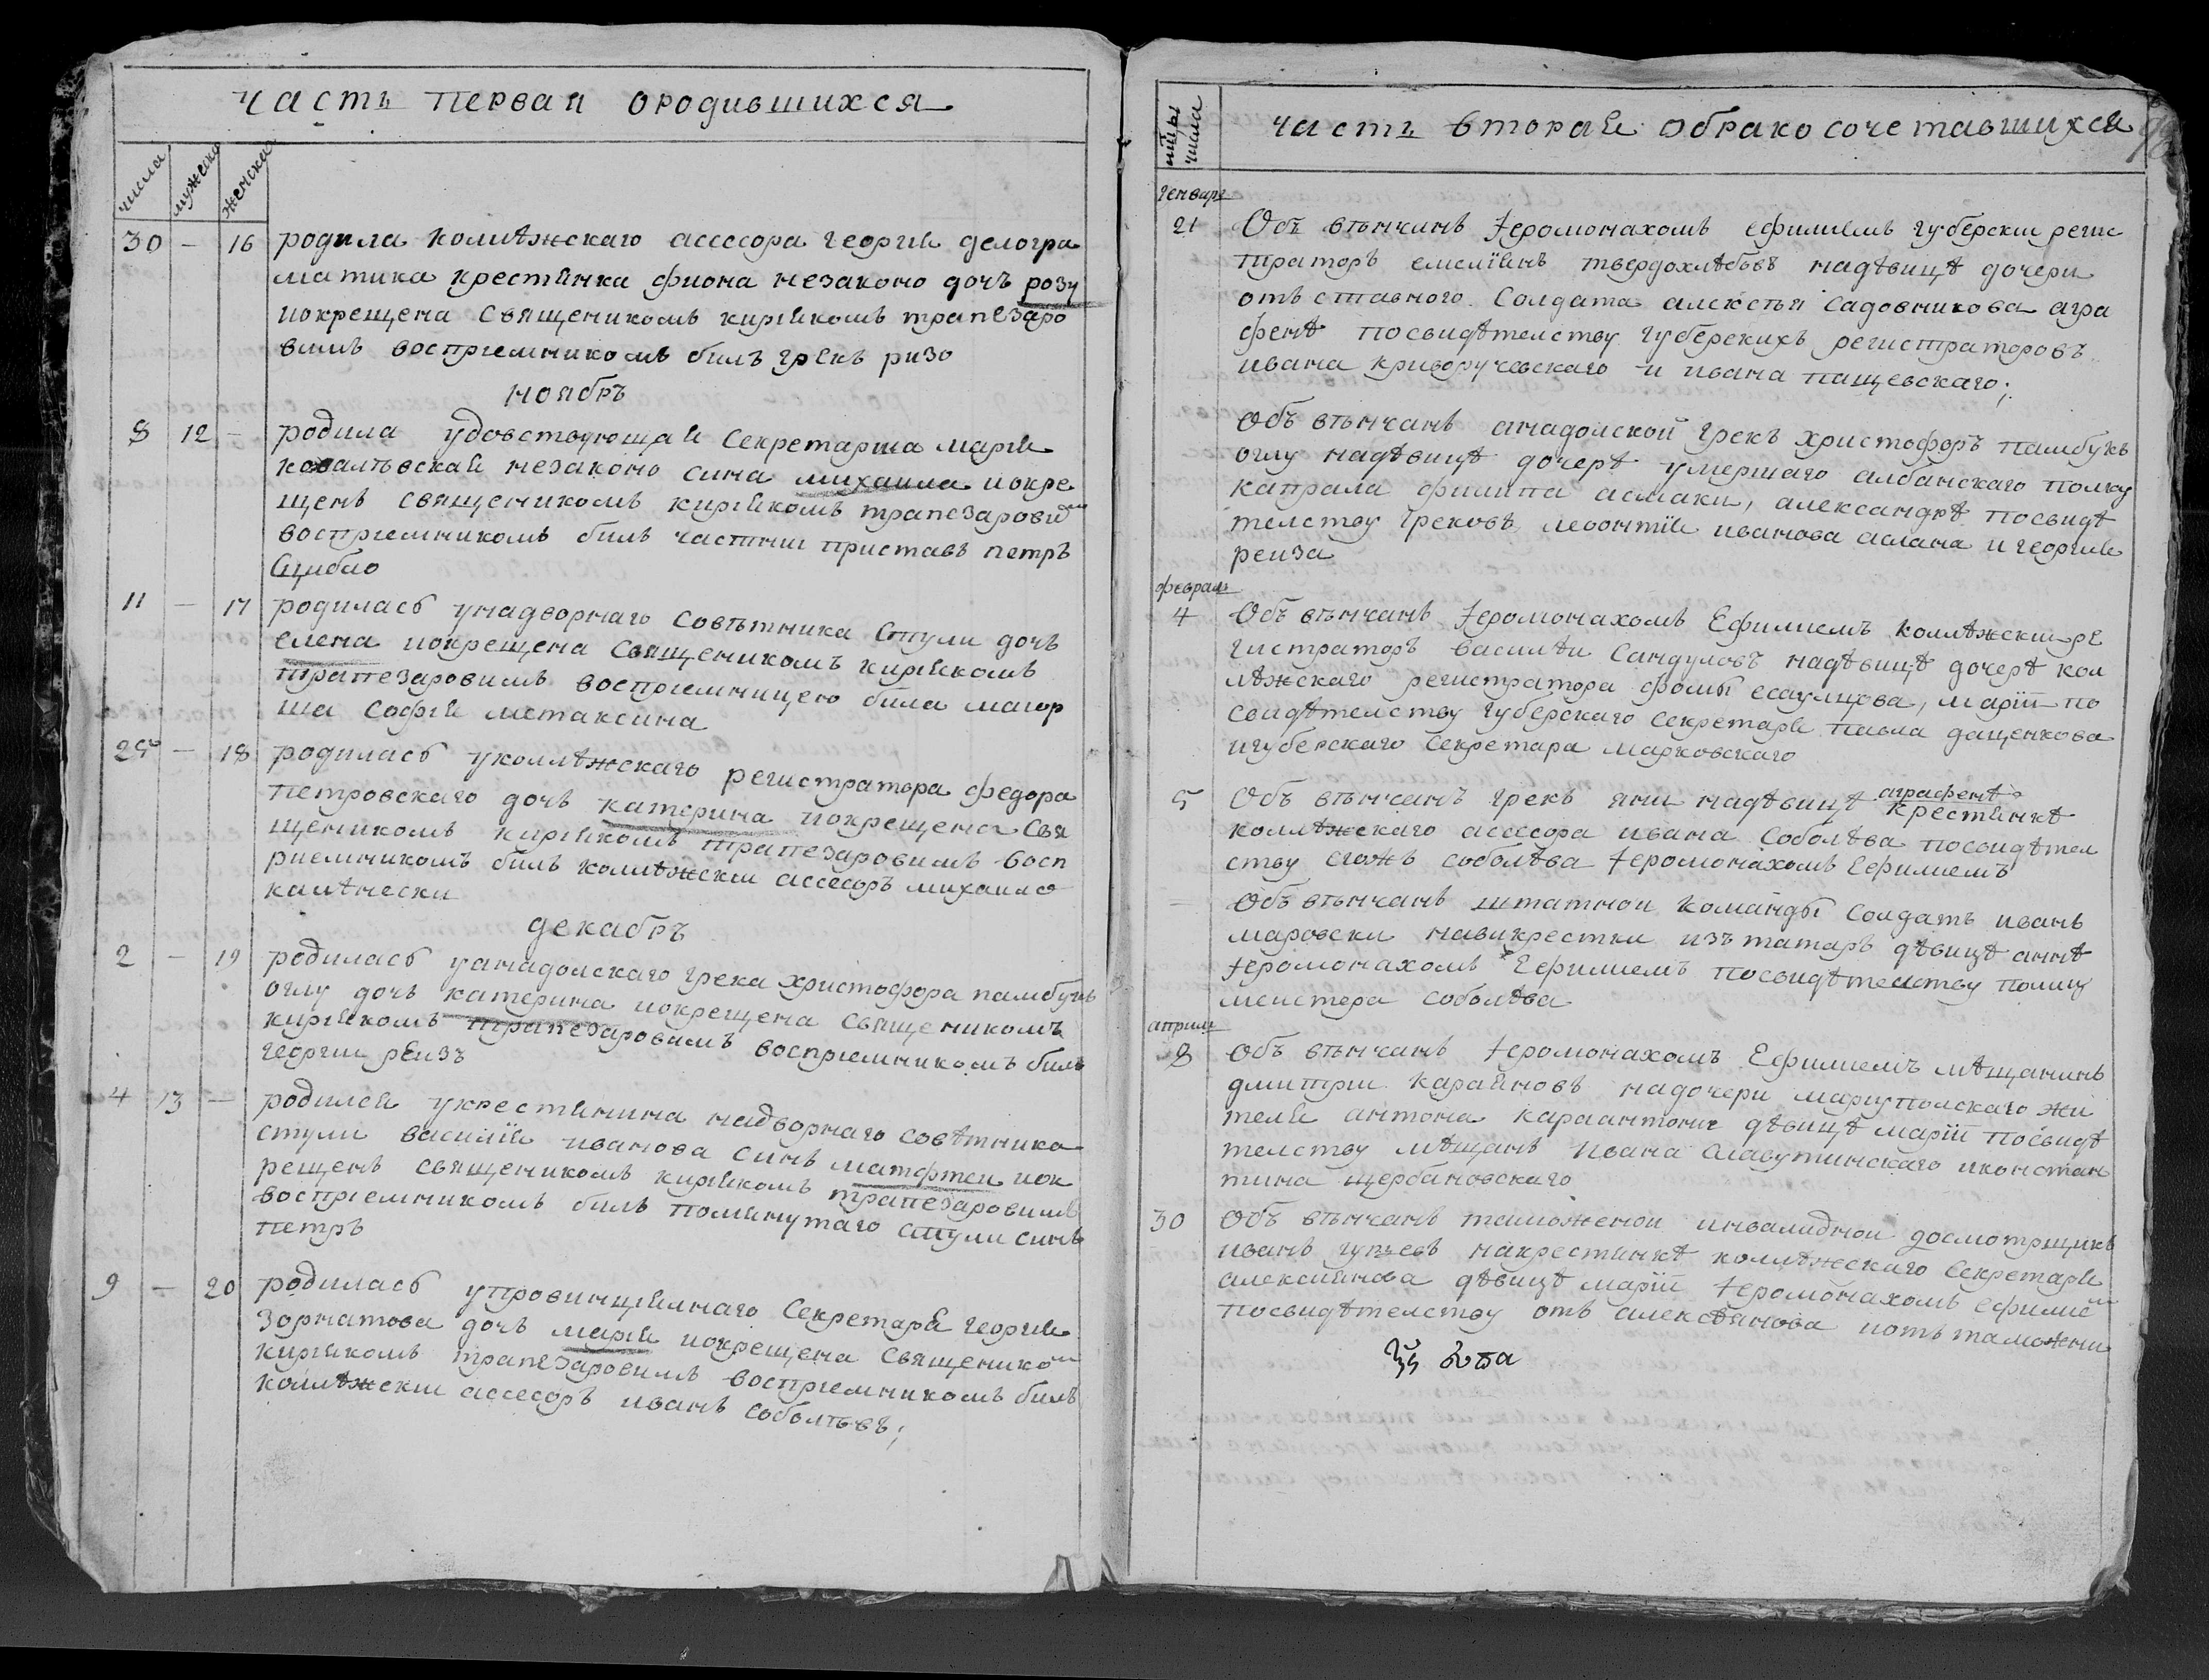 часть первая ородившихся
числа мужеска женска
30 — 16 родила колѣжскаго асесора георгия делогра
матика крестянка фиона незаконо дочъ розу
июкрещена священикомъ кириякомъ трапезаро
вимъ восприемникомъ билъ грекъ ризо
ноябръ
8 12 — родила удовствующая секретарша мария
ковалъвская незаконо сина михаила иокре
щенъ священикомъ кириякомъ трапезаровим
восприемникомъ билъ частнии приставъ петръ
11 — 17 родиласъ унадворнаго совѣтника стули дочъ
елена июкрещена священикомъ кириякомъ
трапезаровимъ восприемницею била маиор
ша софия метаксина
25 — 18 родиласъ уколлѣжскаго регистратора федора
петровскаго дочъ катерина июкрещена свя
щеникомъ кириякомъ трапезаровимъ восп
риемникомъ билъ колѣжскии ассесоръ михаило
калѣнески
декабръ
2 — 19 родиласъ уанадолскаго грека христофора памбукъ
оглу дочъ катерина июкрещена священикомъ
кириякомъ трапезаровимъ восприемникомъ билъ
георгии реизъ
4 13 — родился укрестянина надворнаго совѣтника
стули василия иванова синъ матфтеи иок
рещенъ священикомъ кириякомъ трапезаровимъ
восприемникомъ билъ помянутаго стули синъ
петръ
9 — 20 родиласъ упровинциялнаго секретаря георгия
зорматова дочъ мария июкрещена священиком
кириякомъ трапезаровимъ восприемникомъ билъ
колѣжскии ассесоръ иванъ соболъвъ;
числа
часть вторая обракосочетавшихся
генваря
21 Объ вѣнчинъ Iеромонахомъ ефимиемъ губерскии регис
траторъ емелиянъ твердохлѣбовъ надѣвицѣ дочери
отъставного солдата алексѣя садовникова агра
фенѣ посвидѣтелству губерскихъ регистраторовъ
ивана криворучевскаго и ивана пащевскаго;
Объ вѣнчанъ анадолской грекъ христофоръ памбукъ
оглу надѣвицѣ дочерѣ умершаго албанскаго полку
капрала филипа асмаки, александрѣ посвидѣ
телству грековъ леонтия иванова аслана и георгия
реиза
февраля
4 Объ вѣнчанъ Iеромонахомъ Ефимиемъ коллѣжскии ре
гистраторъ василѣи сандуловъ надѣвицѣ дочерѣ кол
лѣжскаго регистратора фомы есаулцова, марiи по
свидѣтелству губерскаго секретаря павла дащенкова
игуберскаго секретара марковскаго
5 Объ вѣнчанъ грекъ яни надѣвицѣ аграфенѣ крестянкѣ
коллѣжскаго асесора ивана соболѣва посвидѣтел
ству егожъ соболѣва Iеромонахомъ Ефимиемъ
— Объ вѣнчанъ штатнои команды солдатъ иванъ
маровски навикрестки изътатаръ дѣвицѣ аннѣ
Iеромонахомъ Ефимиемъ посвидѣтелству полиц
меистера соболѣва
априля
8 Объ вѣнчанъ Iеромонахомъ Ефимиемъ мѣщанинъ
дмитрии караяновъ надочери мариуполскаго жи
теля антона караантонич дѣвицѣ марiи посвидѣ
телству мѣщанъ ивана славутинскаго иконстан
тина щербановскаго
30 Объ вѣнчанъ таможенои инвалиднои досмотрщикъ
иванъ гупъевъ накрестянкѣ колѣжскаго секретаря
алексиянова дѣвицѣ марiи Iеромонахомъ ефимием
посвидѣтелству отъ алексѣянова иотътаможни